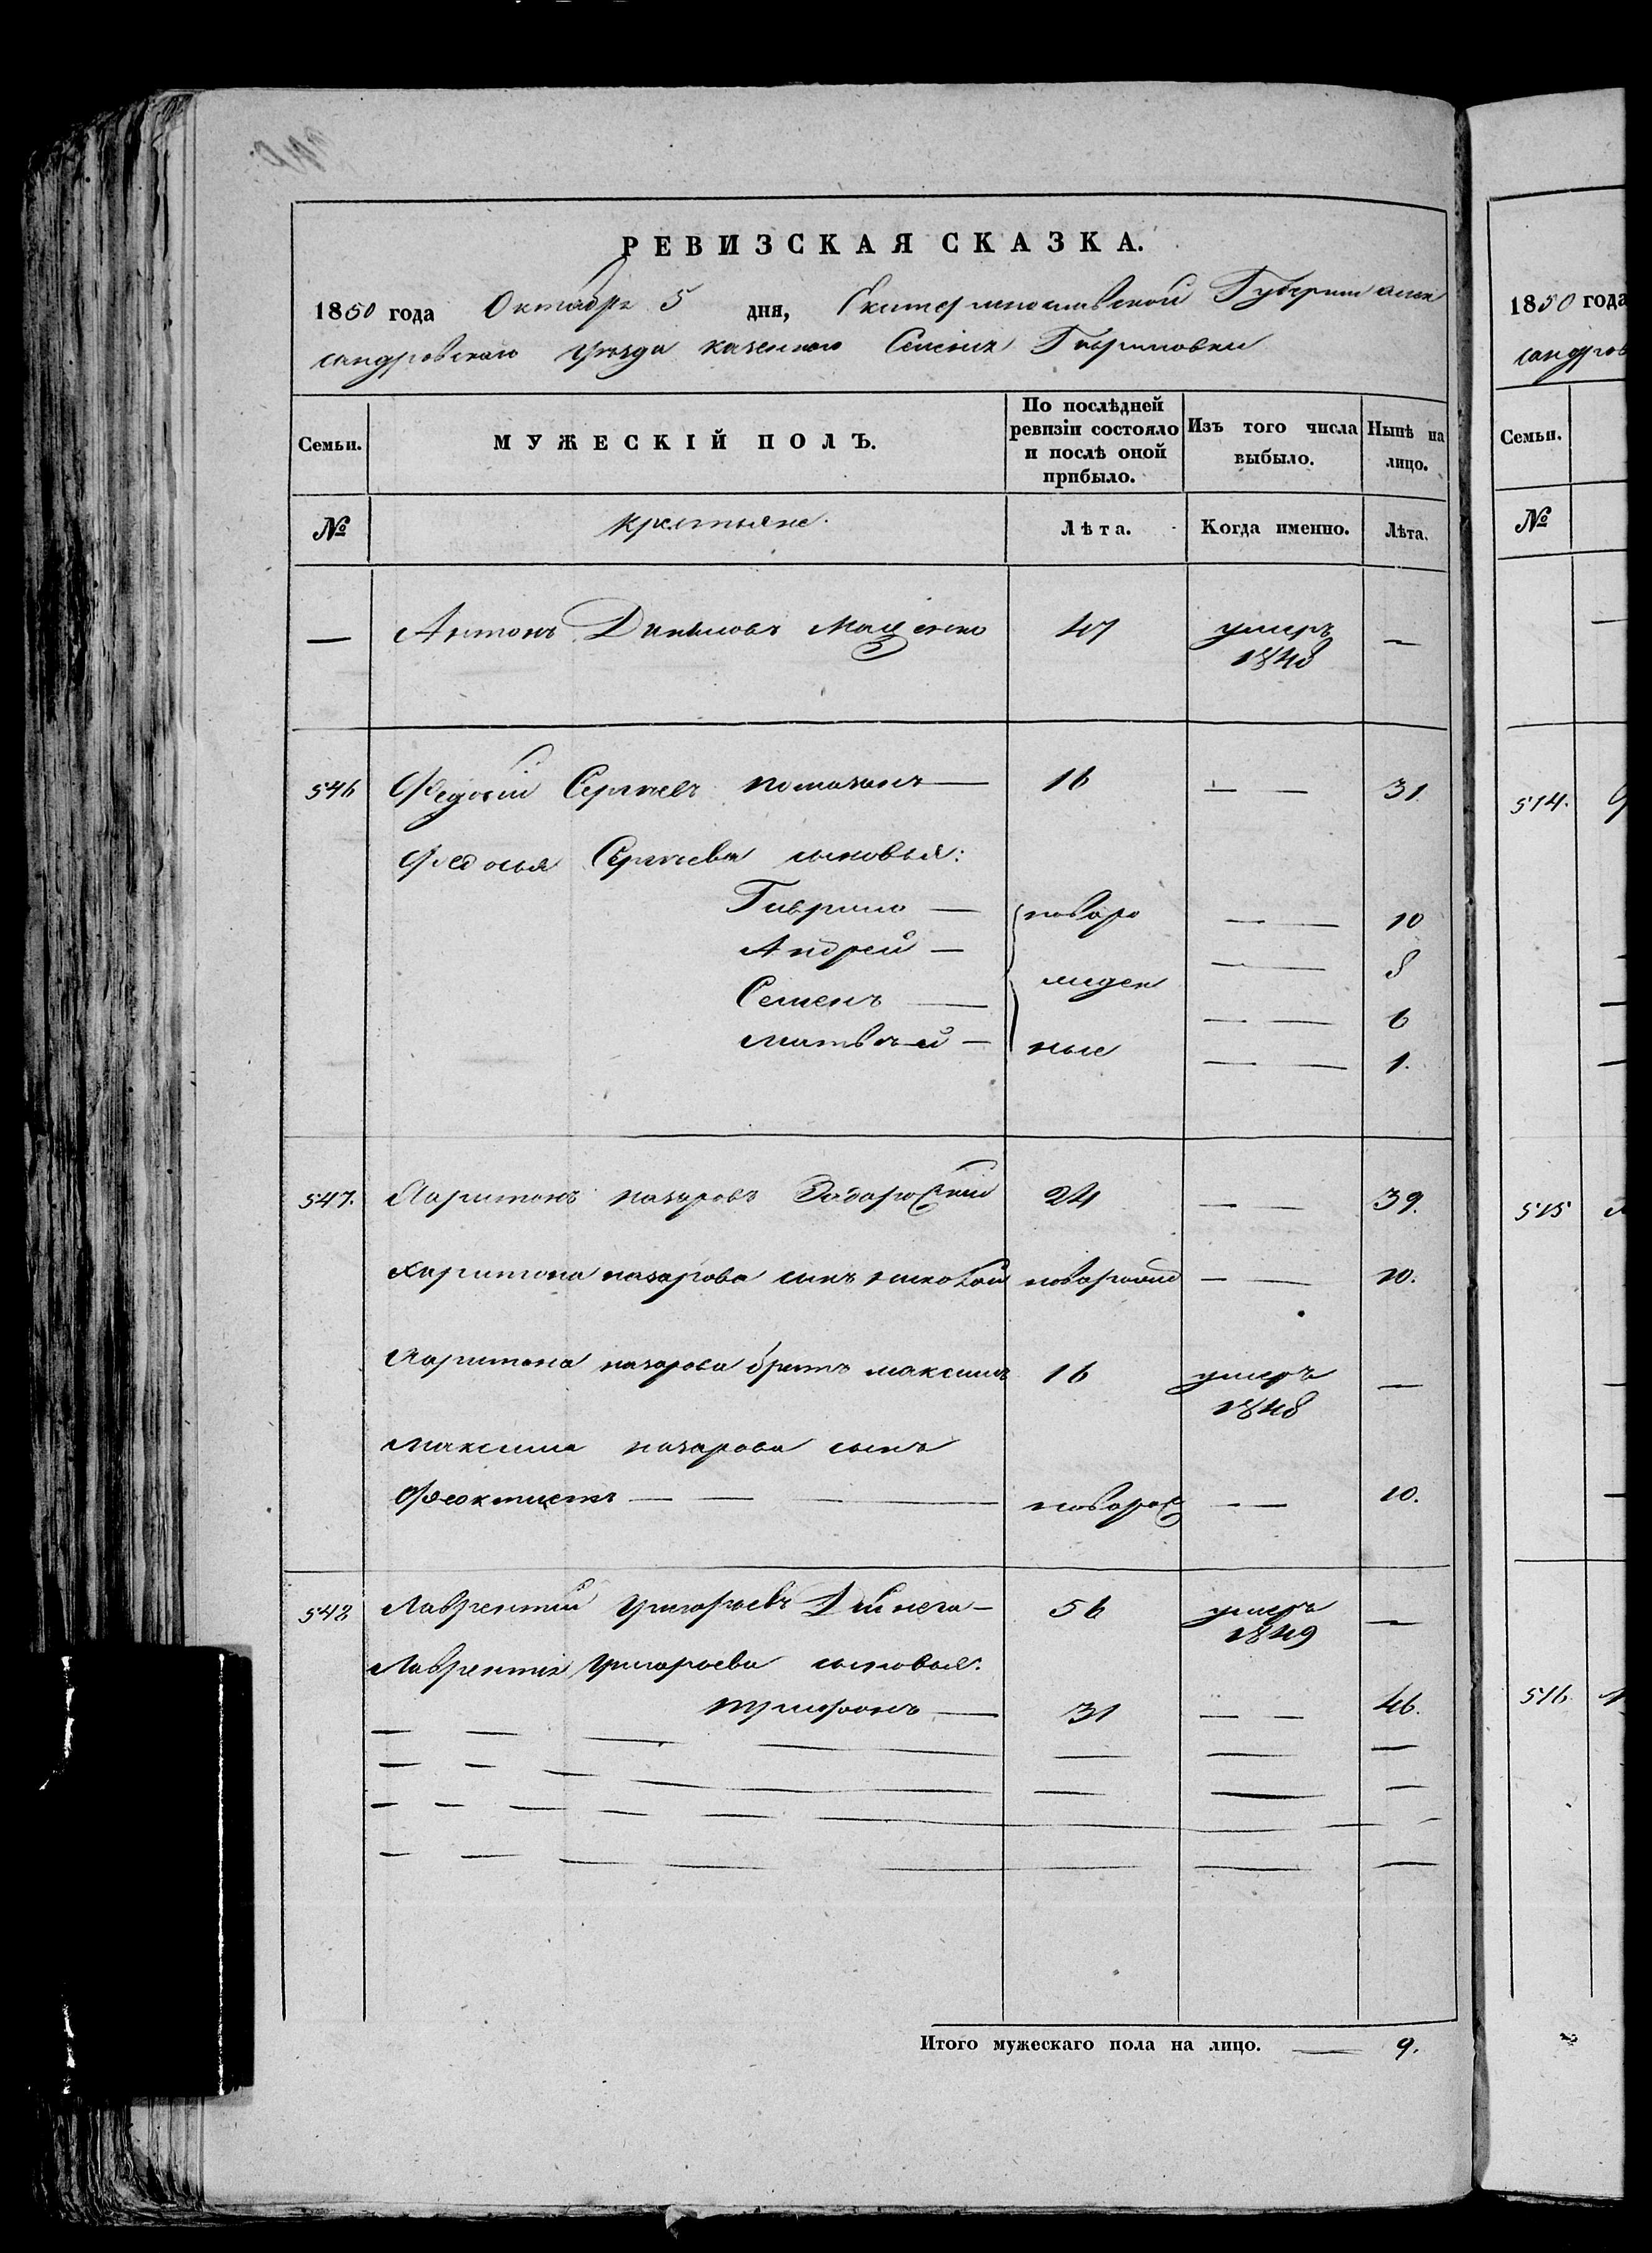 РЕВИЗСКАЯ СКАЗКА.
1850 года Октября 5 дня, Екатеринославской Губернии Алек
сандровского уезда казенного Селения Гавриловки
Семьи. МУЖЕСКІЙ ПОЛЪ. По послѣдней ревизіи состояло и послѣ оной прибыло. Изъ того числа выбыло. Нынѣ на лицо.
№ крестьяне. Лѣта. Когда именно. Лѣта.
— Антонъ Даниловъ Маценко 47 умеръ 1848 —
546 Федосій Сергѣевъ Потапов — 16 — — 31
Федосія Сергѣева сыновья:
Гаврило — новоро — — 10
Андрей — — — 8
Семенъ — жден — — 6
Матвѣй — ные — — 1.
547. Харитонъ Назаровъ 24 — — 39.
Харитона Назарова сынъ Николай новорожд — — 10.
Харитона Назарова братъ Максимъ 16 умеръ 1848 —
Максима Назарова сынъ
Феоктистъ — — — — новорож — — 10.
548 Лаврентій Григорьевъ Дейнега — 56 умеръ 1849 —
Лаврентія Григорьева сыновья:
Трифонъ — 31 — — 46.
Итого мужескаго пола на лицо. — 9.
1850 года
сандров
Семьи.
№
514.
515
516